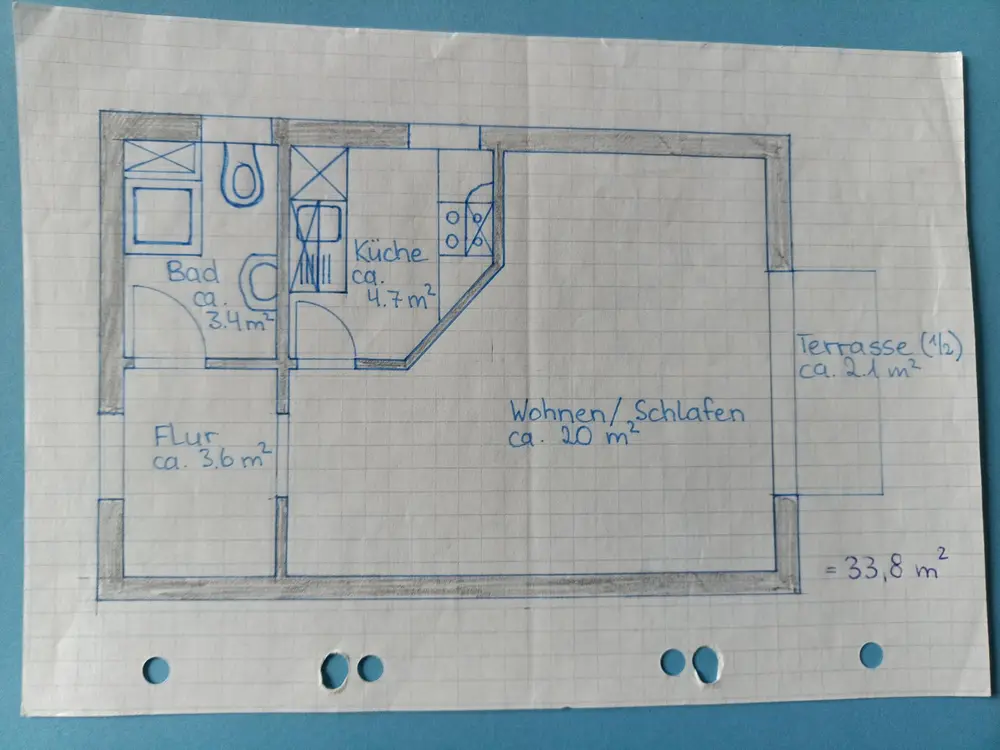 Bad
ca.
3.4 m²
Küche
ca.
4.7 m²
Terrasse (1/2)
ca. 2.1 m²
Wohnen/ Schlafen
ca. 20 m²
Flur
ca. 3.6 m²
= 33,8 m²